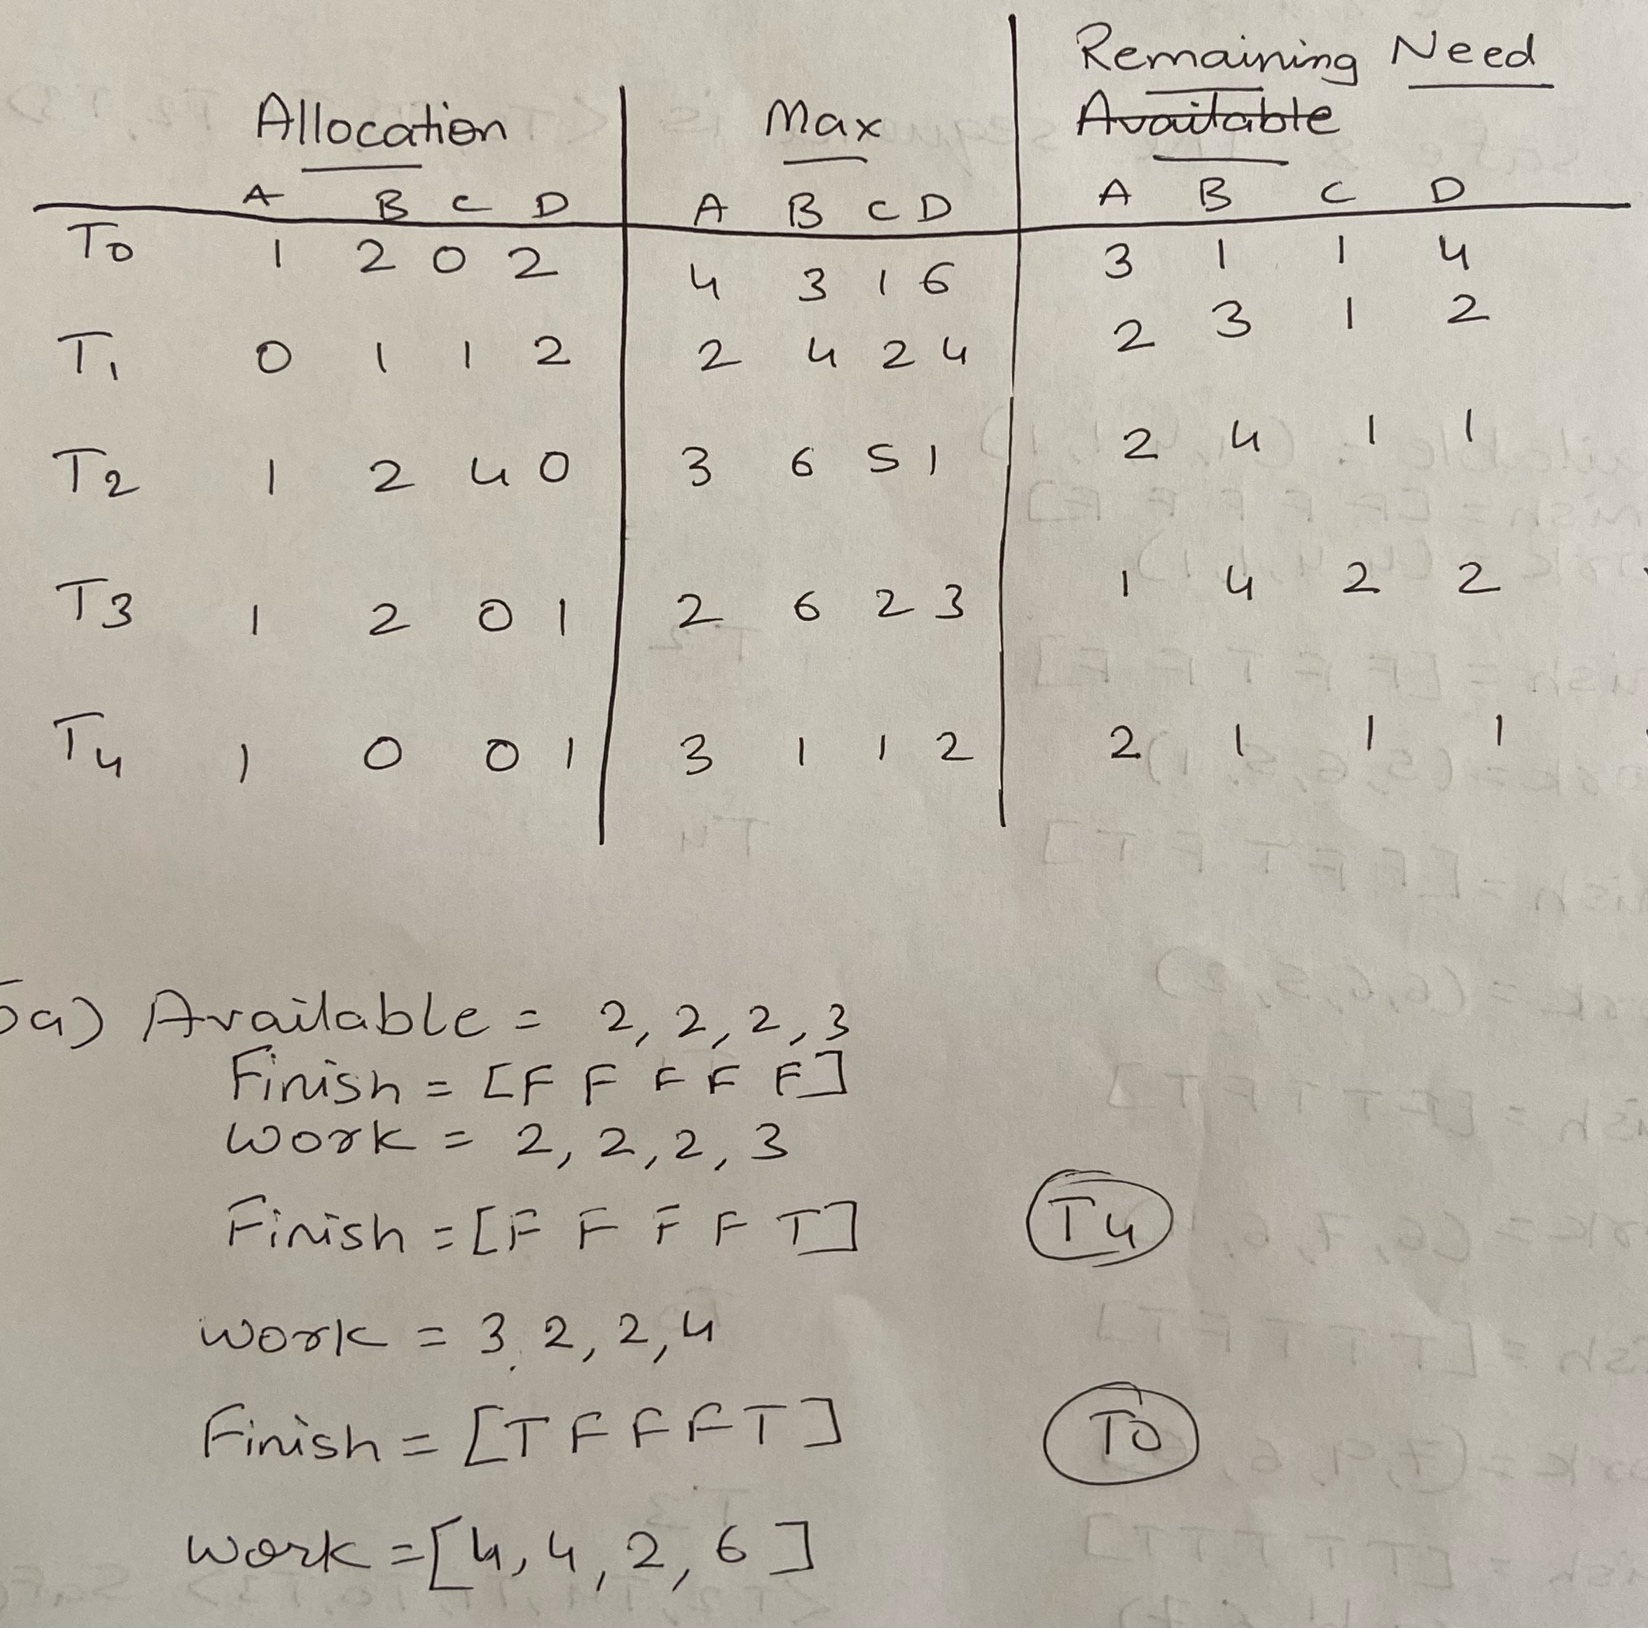 Remaining Need
Allocation Max Available
A B C D A B C D A B C D
T0 1 2 0 2 4 3 1 6 3 1 1 4
T1 0 1 1 2 2 4 2 4 2 3 1 2
T2 1 2 4 0 3 6 5 1 2 4 1 1
T3 1 2 0 1 2 6 2 3 1 4 2 2
T4 1 0 0 1 3 1 1 2 2 1 1 1
5a) Available = 2, 2, 2, 3
Finish = [F F F F F]
Work = 2, 2, 2, 3
Finish = [F F F F T] T4
Work = 3, 2, 2, 4
Finish = [T F F F T] T0
Work = [4, 4, 2, 6]